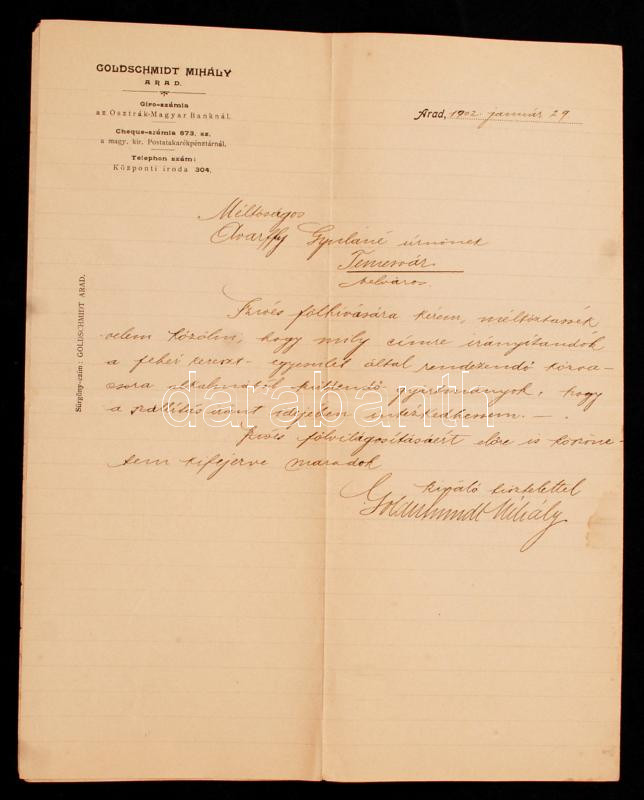 GOLDSCHMIDT MIHÁLY
ARAD.
Giro-számla
az Osztrák-Magyar Banknál.
Cheque-számla 873. sz.
a magy. kir. Postatakarékpénztárnál.
Telephon szám:
Központi iroda 304.
Arad, 1902 január 29
Sürgöny-czim: GOLDSCHMIDT ARAD.
Méltóságos
Gyuláné úrnőnek
Temesvár
belváros.
Szives fölhivására kérem, méltóztassék
velem közölni, hogy mily címre irányítandók
a fehér kereszt-egyesület által rendezendő
alkalmából küldendő gyártmányok, hogy
a szállítás iránt idejében intézkedhessem. —
Szives fölvilágosításáért előre is köszöne-
tem kifejezve maradok
kiváló tisztelettel
Goldschmidt Mihály
darabanth